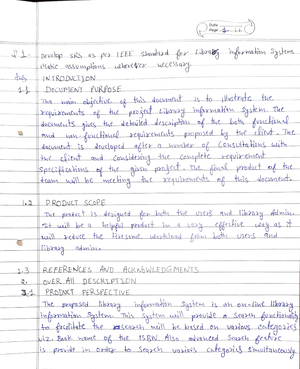 Date
Page 1
Q1. Develop SRS as per IEEE standard for Library information System
Make assumptions wherever necessary.
Ans INTRODUCTION
1.1 DOCUMENT PURPOSE
The main objective of this document is to illustrate the
requirements of the project Library information System. The
documents gives the detailed description of the both functional
and non-functional requirements proposed by the client. The
document is developed after a number of consultations with
the client and considering the complete requirement
specifications of the given project. The final product of the
team will be meeting the requirements of this document.
1.2 PRODUCT SCOPE
The product is designed for both the users and library Admin.
It will be a helpful product in a very effective way as it
will reduce the tiresome workload from both users and
library admin.
1.3 REFERENCES AND ACKNOWLEDGMENTS
2. OVER ALL DESCRIPTION
2.1 PRODUCT PERSPECTIVE
The proposed library information System is an on-line library
information System. This system will provide a search functionality
to facilitate the search will be based on various categories
viz. Book name of the ISBN. Also advanced Search feature
is provide in order to search various categories simultaneously